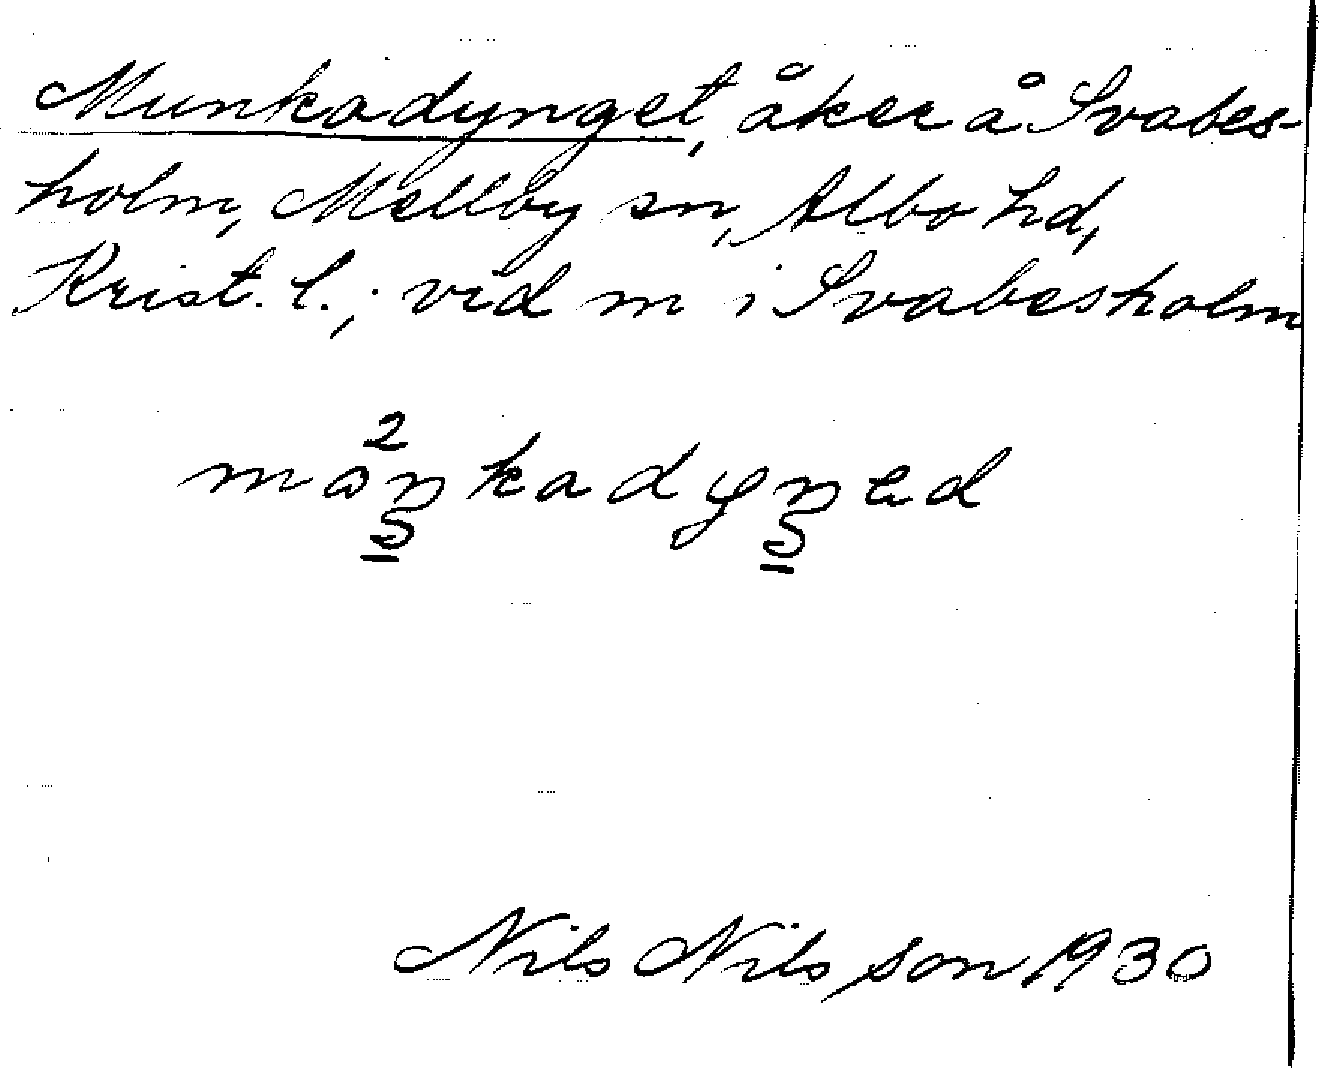 Munkadynget, åker å Svabes-
holm, Mellby sn, Albo hd,
Krist. l.; vid m i Svabesholm
2
mɷŋkadyŋəd
Nils Nilsson 1930